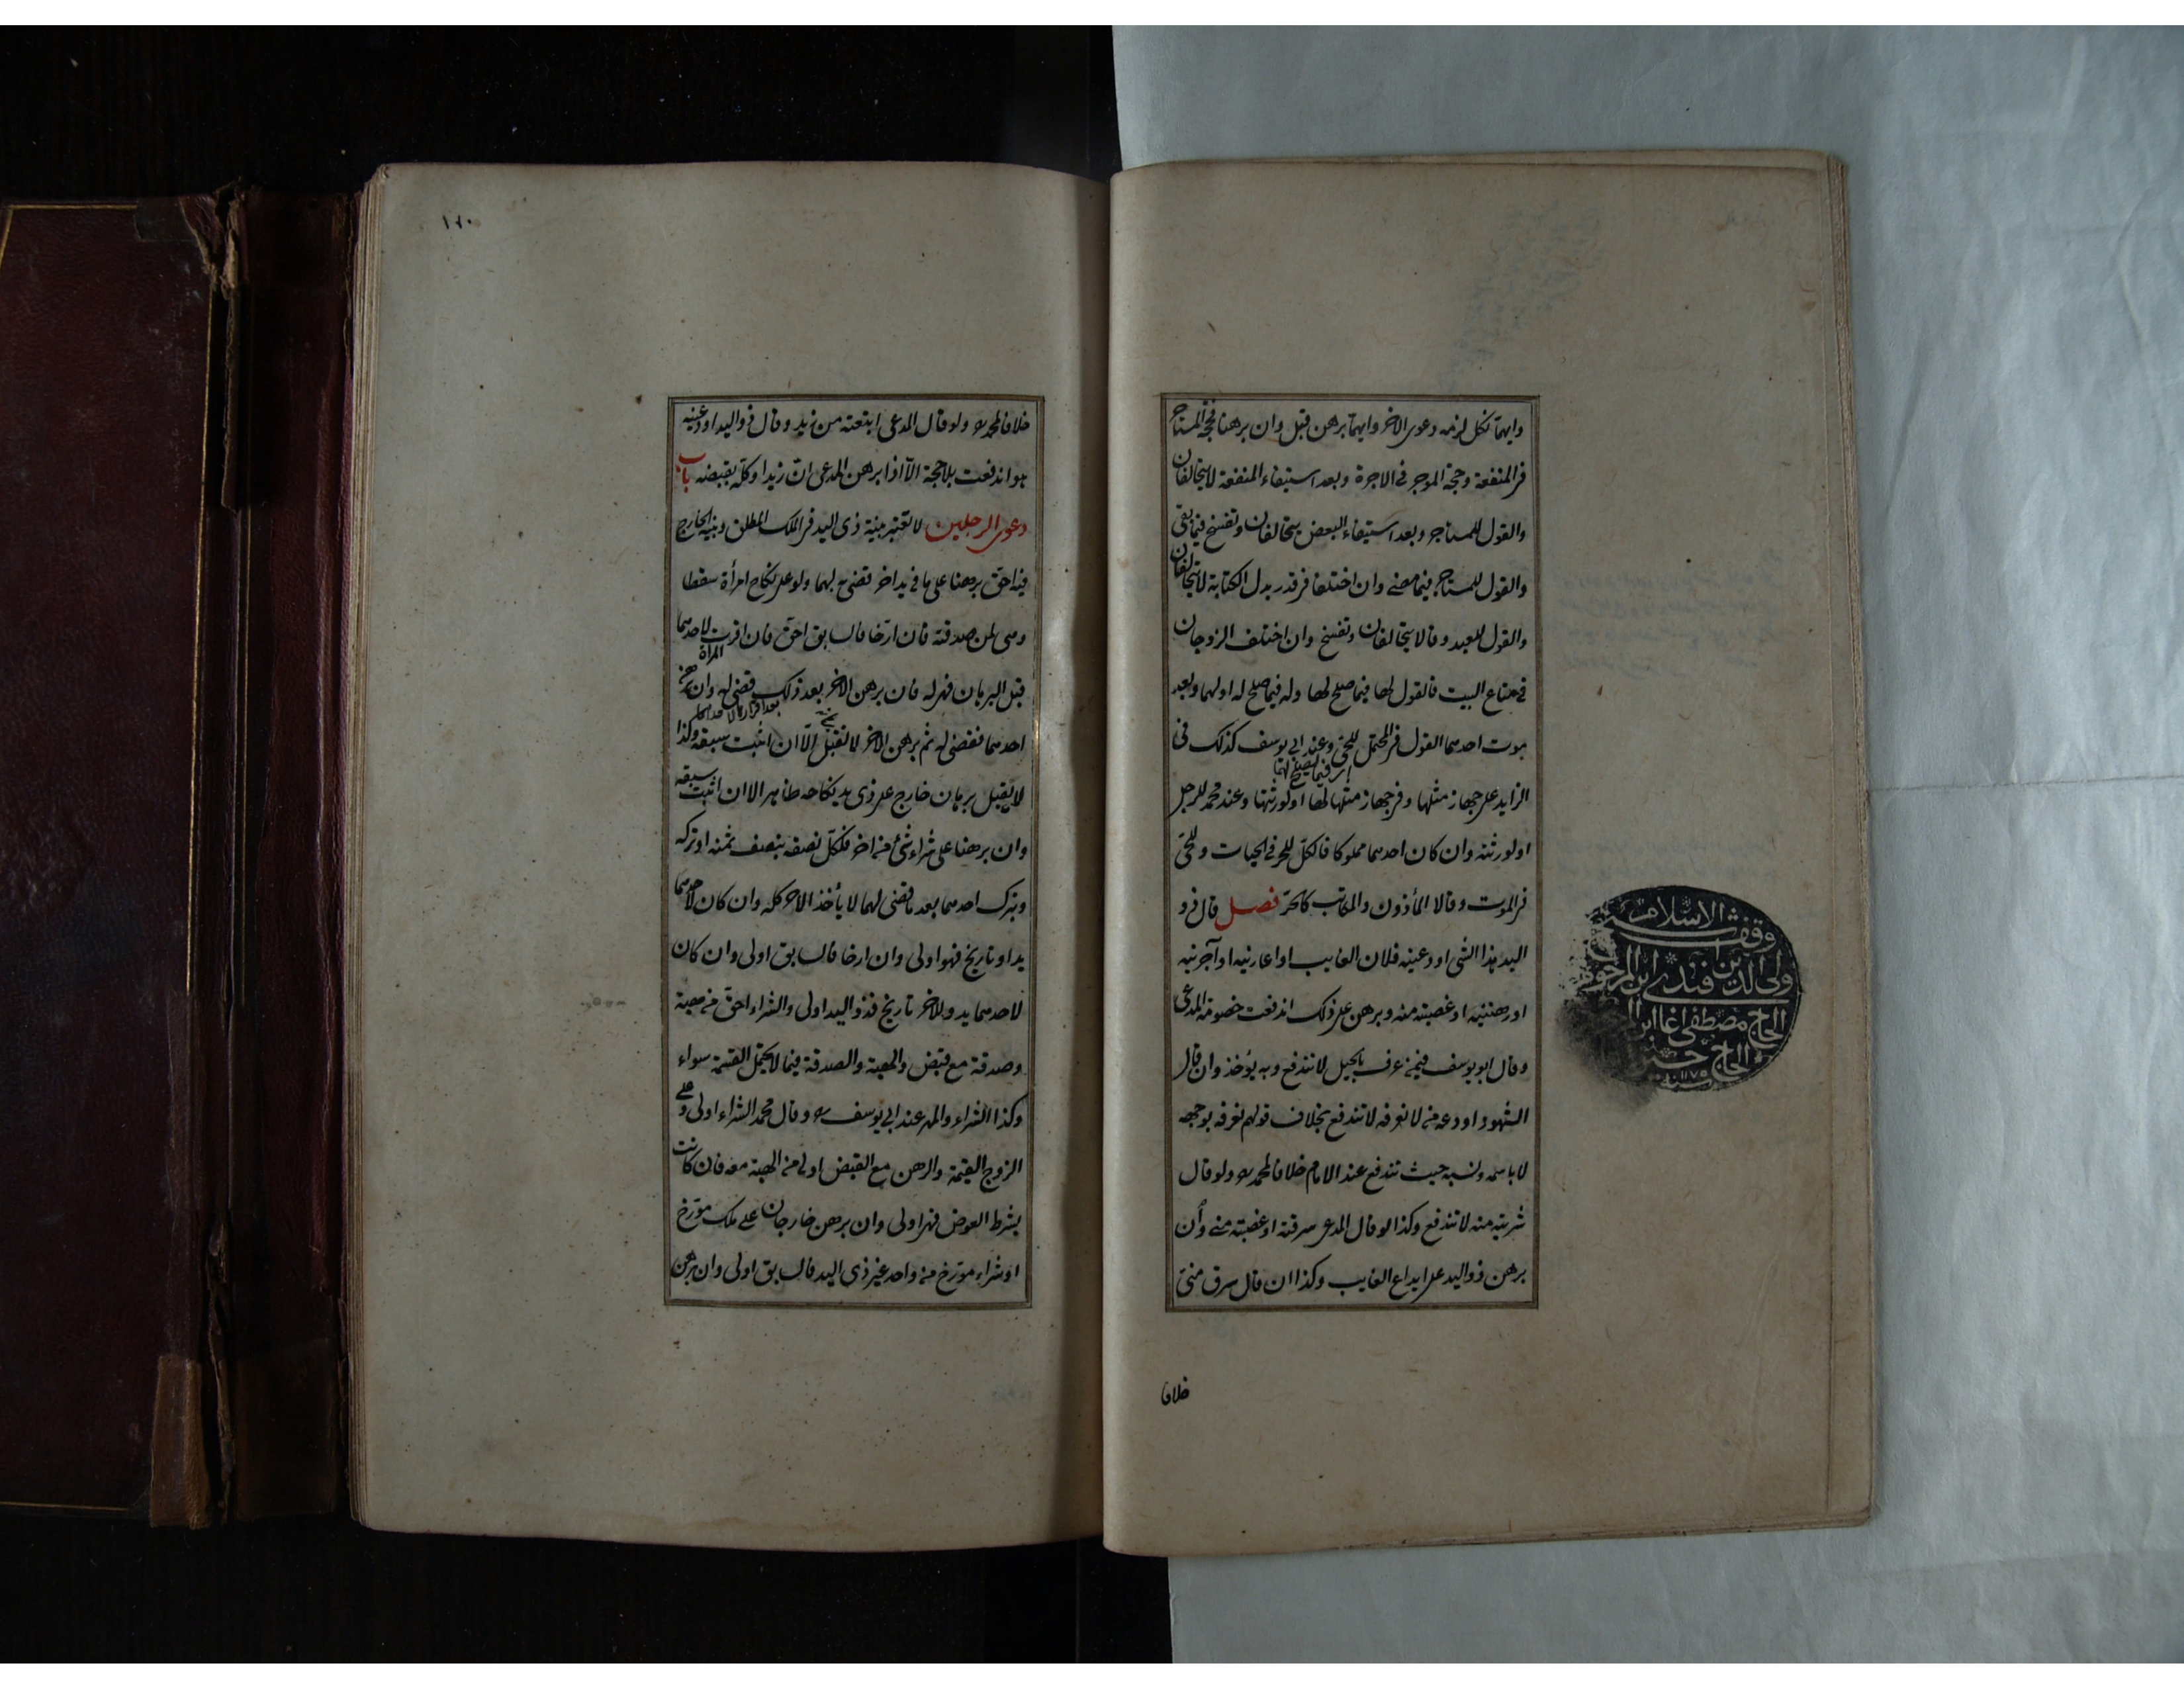 وايهما نكل لزمه دعوى الاخر وايهما برهن قبل وان برهنا فحجة المستاجر
فى المنفعة وحجة الموجر فى الاجرة وبعد استيفاء المنفعة لا يتحالفان
والقول للمستاجر وبعد استيفاء البعض يتحالفان وتفسخ فيما بقى
والقول للمستاجر فيما مضى وان اختلفا فى قدر بدل الكتابة لا يتحالفان
والقول للعبد وقالا يتحالفان وتفسخ وان اختلف الزوجان
فى متاع البيت فالقول لها فيما صلح لها وله فيما صلح له او لهما وبعد
موت احدهما القول فى المحتمل للحى وعند ابى يوسف كذلك فى
اى فيما يصلح لهما
الزايد على جهاز مثلها وفى جهاز مثلها لها او لورثتها وعند محمد للرجل
او لورثته وان كان احدهما مملوكا فالكل للحر فى الحيات وللحى
فى الموت وقالا المأذون والمكاتب كالحر فصل قال ذو
اليد هذا الشئ اودعنيه فلان الغايب او اعارنيه او آجرنيه
او رهننيه او غصبته منه وبرهن على ذلك اندفعت خصومة المدعى
وقال ابو يوسف فيمن عرف بالحيل لا تندفع وبه يؤخذ وان قال
الشهود اودعه من لا نعرفه لا تندفع بخلاف قولهم نعرفه بوجهه
لا باسمه ونسبه حيث تندفع عند الامام خلافا لمحمد ره ولو قال
شريته منه لا تندفع وكذا لو قال المدعى سرقته او غصبته منى وان
برهن ذو اليد على ايداع الغايب وكذا ان قال سرق منى
خلافا
وقف شيخ الاسلام
ولى الدين افندى ابن المرحوم
الحاج مصطفى اغا ابن
الحاج حسين
سنة ١١٧٥
١٦٠
خلافا لمحمد ره ولو قال المدعى ابتعته من زيد وقال ذو اليد اودعنيه
هو اندفعت بلا حجة الا اذا برهن المدعى ان زيدا وكله بقبضه باب
دعوى الرجلين لا تعتبر بينة ذى اليد فى الملك المطلق وبينة الخارج
فيه احق برهنا على ما فى يد اخر قضى به لهما ولو على نكاح امرأة سقطا
وهى لمن صدقته فان ارخا فالسابق احق فان اقرت لاحدهما
المرأة
قبل البرهان فهى له فان برهن الاخر بعد ذلك قضى له وان برهن
بعد اقرارها لاحدهما
احدهما فقضى له ثم برهن الاخر لا تقبل الا ان اثبت سبقه وكذا
لا يقبل برهان خارج على ذى يد نكاحه ظاهر الا ان اثبت سبقه
وان برهنا على شراء شئ من اخر فلكل نصفه بنصف ثمنه او تركه
وبترك احدهما بعد ما قضى لهما لا يأخذ الاخر كله وان كان لاحدهما
يد او تاريخ فهو اولى وان ارخا فالسابق اولى وان كان
لاحدهما يد وللاخر تاريخ فذو اليد اولى والشراء احق من هبة
وصدقة مع قبض والهبة والصدقة فيما لا يحتمل القسمة سواء
وكذا الشراء والمهر عند ابى يوسف ره وقال محمد الشراء اولى وعلى
الزوج القيمة والرهن مع القبض اولى من الهبة معه فان كانت
بشرط العوض فهى اولى وان برهن خارجان على ملك مؤرخ
او شراء مؤرخ من واحد غير ذى اليد فالسابق اولى وان برهن